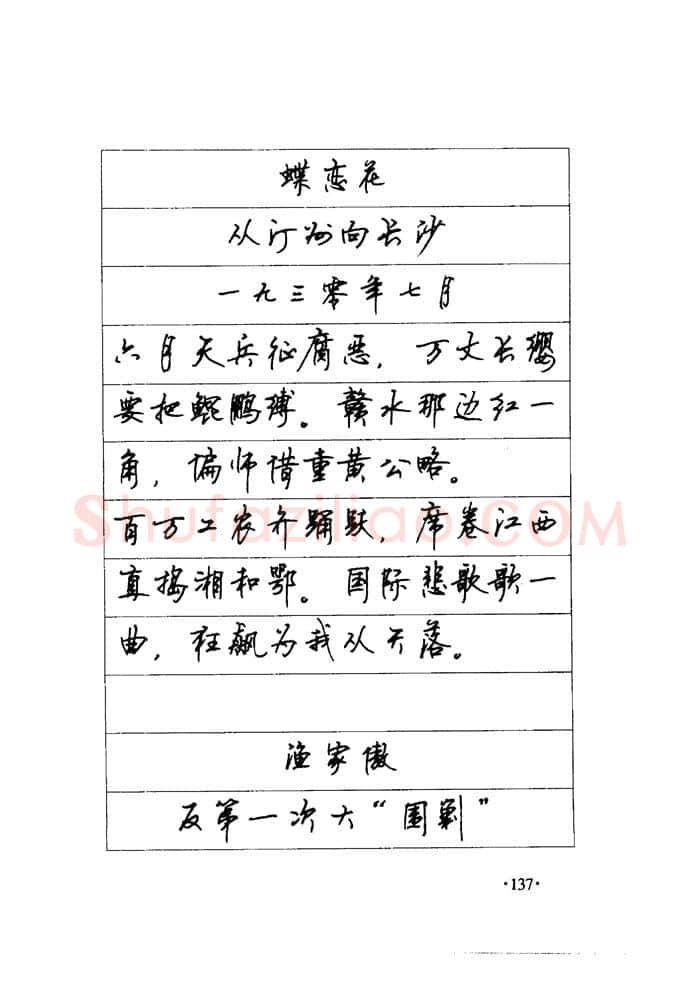 蝶恋花
从汀州向长沙
一九三零年七月
六月天兵征腐恶，万丈长缨
要把鲲鹏缚。赣水那边红一
角，偏师借重黄公略。
百万工农齐踊跃，席卷江西
直捣湘和鄂。国际悲歌歌一
曲，狂飙为我从天落。
渔家傲
反第一次大“围剿”
·137·
Shufaziliao.COM